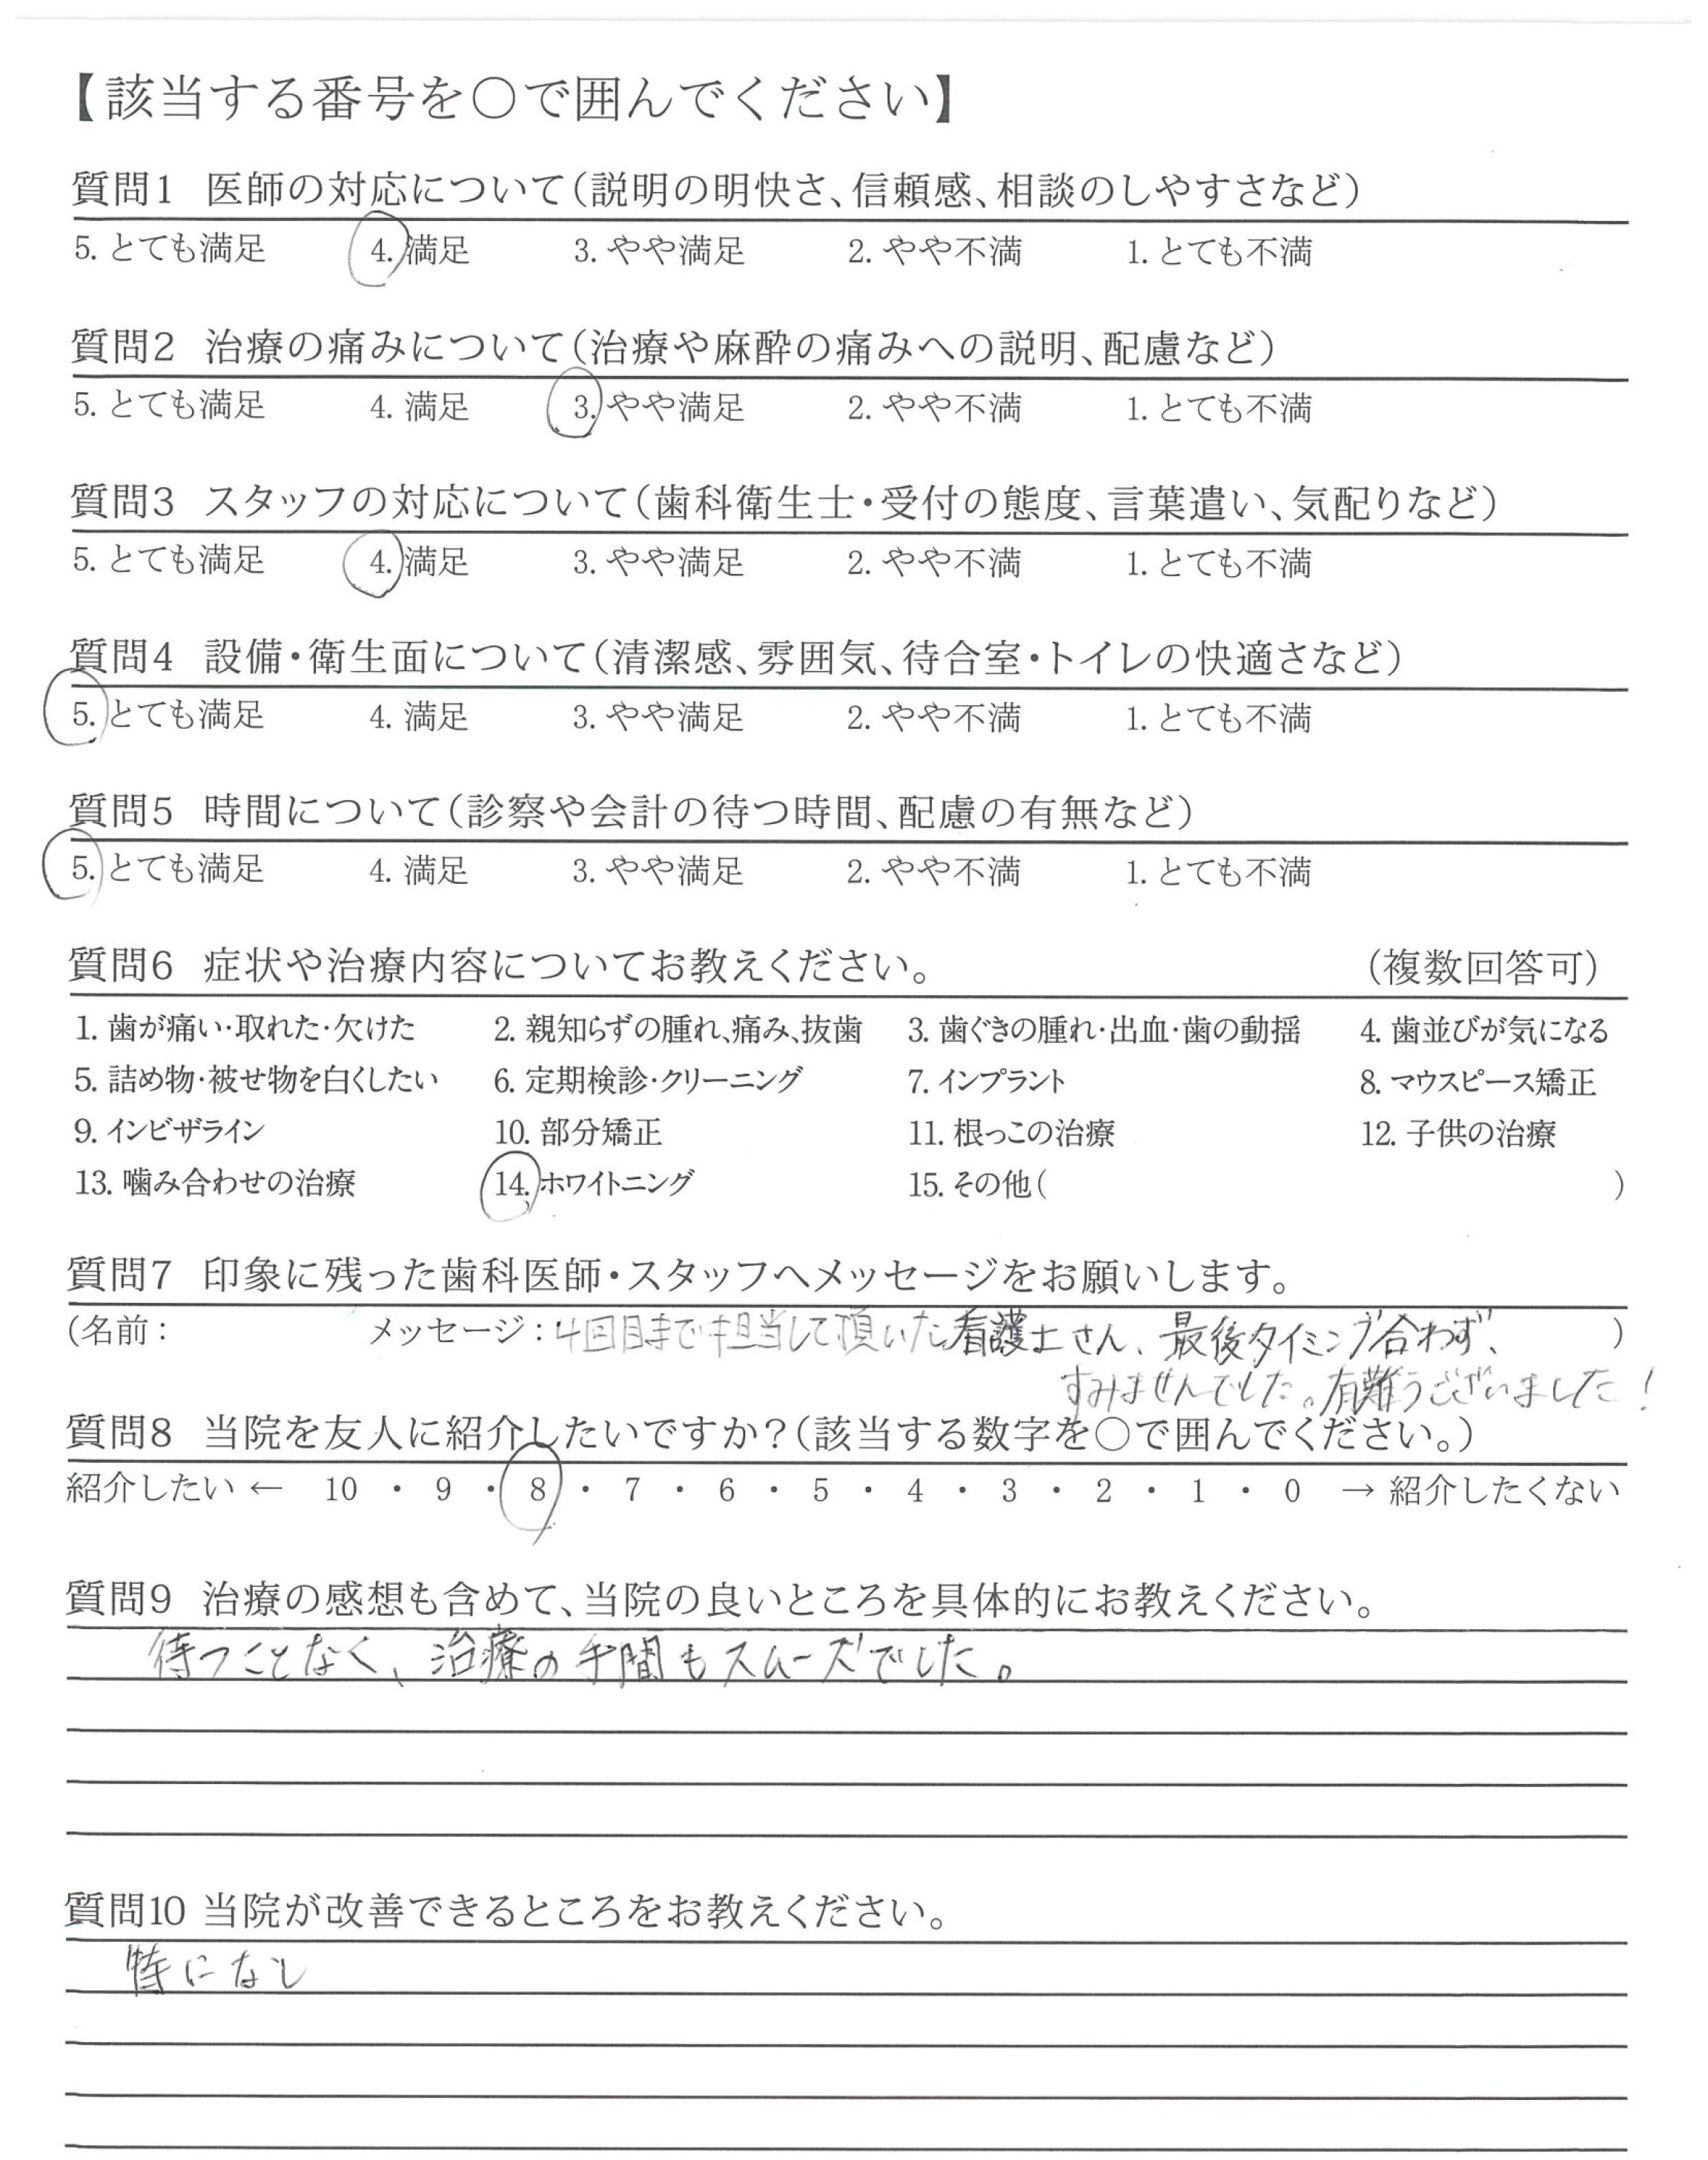 【該当する番号を○で囲んでください】
質問1 医師の対応について(説明の明快さ、信頼感、相談のしやすさなど)
5. とても満足 4. 満足 3. やや満足 2. やや不満 1. とても不満
質問2 治療の痛みについて(治療や麻酔の痛みへの説明、配慮など)
5. とても満足 4. 満足 3. やや満足 2. やや不満 1. とても不満
質問3 スタッフの対応について(歯科衛生士・受付の態度、言葉遣い、気配りなど)
5. とても満足 4. 満足 3. やや満足 2. やや不満 1. とても不満
質問4 設備・衛生面について(清潔感、雰囲気、待合室・トイレの快適さなど)
5. とても満足 4. 満足 3. やや満足 2. やや不満 1. とても不満
質問5 時間について(診察や会計の待つ時間、配慮の有無など)
5. とても満足 4. 満足 3. やや満足 2. やや不満 1. とても不満
質問6 症状や治療内容についてお教えください。 (複数回答可)
1. 歯が痛い・取れた・欠けた 2. 親知らずの腫れ、痛み、抜歯 3. 歯ぐきの腫れ・出血・歯の動揺 4. 歯並びが気になる
5. 詰め物・被せ物を白くしたい 6. 定期検診・クリーニング 7. インプラント 8. マウスピース矯正
9. インビザライン 10. 部分矯正 11. 根っこの治療 12. 子供の治療
13. 噛み合わせの治療 14. ホワイトニング 15. その他( )
質問7 印象に残った歯科医師・スタッフへメッセージをお願いします。
(名前: メッセージ:4回目まで担当して頂いた看護士さん、最後タイミング合わず、 )
すみませんでした。有難うございました!
質問8 当院を友人に紹介したいですか?(該当する数字を○で囲んでください。)
紹介したい ← 10 ・ 9 ・ 8 ・ 7 ・ 6 ・ 5 ・ 4 ・ 3 ・ 2 ・ 1 ・ 0 → 紹介したくない
質問9 治療の感想も含めて、当院の良いところを具体的にお教えください。
待つことなく、治療の手間もスムーズでした。
質問10 当院が改善できるところをお教えください。
特になし